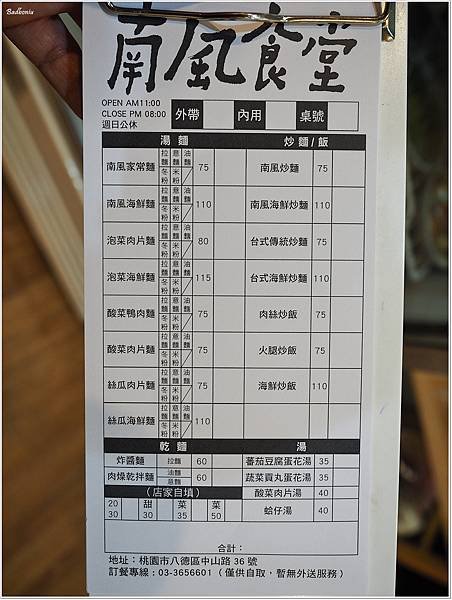 Badboniu
南風食堂
OPEN AM11:00
CLOSE PM 08:00
週日公休
外帶 內用 桌號
湯麵 炒麵/飯
南風家常麵 拉麵 意麵 油麵 冬粉 米粉 75 南風炒麵 75
南風海鮮麵 拉麵 意麵 油麵 冬粉 米粉 110 南風海鮮炒麵 110
泡菜肉片麵 拉麵 意麵 油麵 冬粉 米粉 80 台式傳統炒麵 75
泡菜海鮮麵 拉麵 意麵 油麵 冬粉 米粉 115 台式海鮮炒麵 110
酸菜鴨肉麵 拉麵 意麵 油麵 冬粉 米粉 75 肉絲炒飯 75
酸菜肉片麵 拉麵 意麵 油麵 冬粉 米粉 75 火腿炒飯 75
絲瓜肉片麵 拉麵 意麵 油麵 冬粉 米粉 75 海鮮炒飯 110
絲瓜海鮮麵 拉麵 意麵 油麵 冬粉 米粉 110
乾麵 湯
炸醬麵 拉麵 60 蕃茄豆腐蛋花湯 35
肉燥乾拌麵 油麵 意麵 60 蔬菜貢丸蛋花湯 35
(店家自填) 酸菜肉片湯 40
20 30 甜 30 菜 35 菜 50 蛤仔湯 40
合計:
地址:桃園市八德區中山路 36 號
訂餐專線:03-3656601(僅供自取,暫無外送服務)